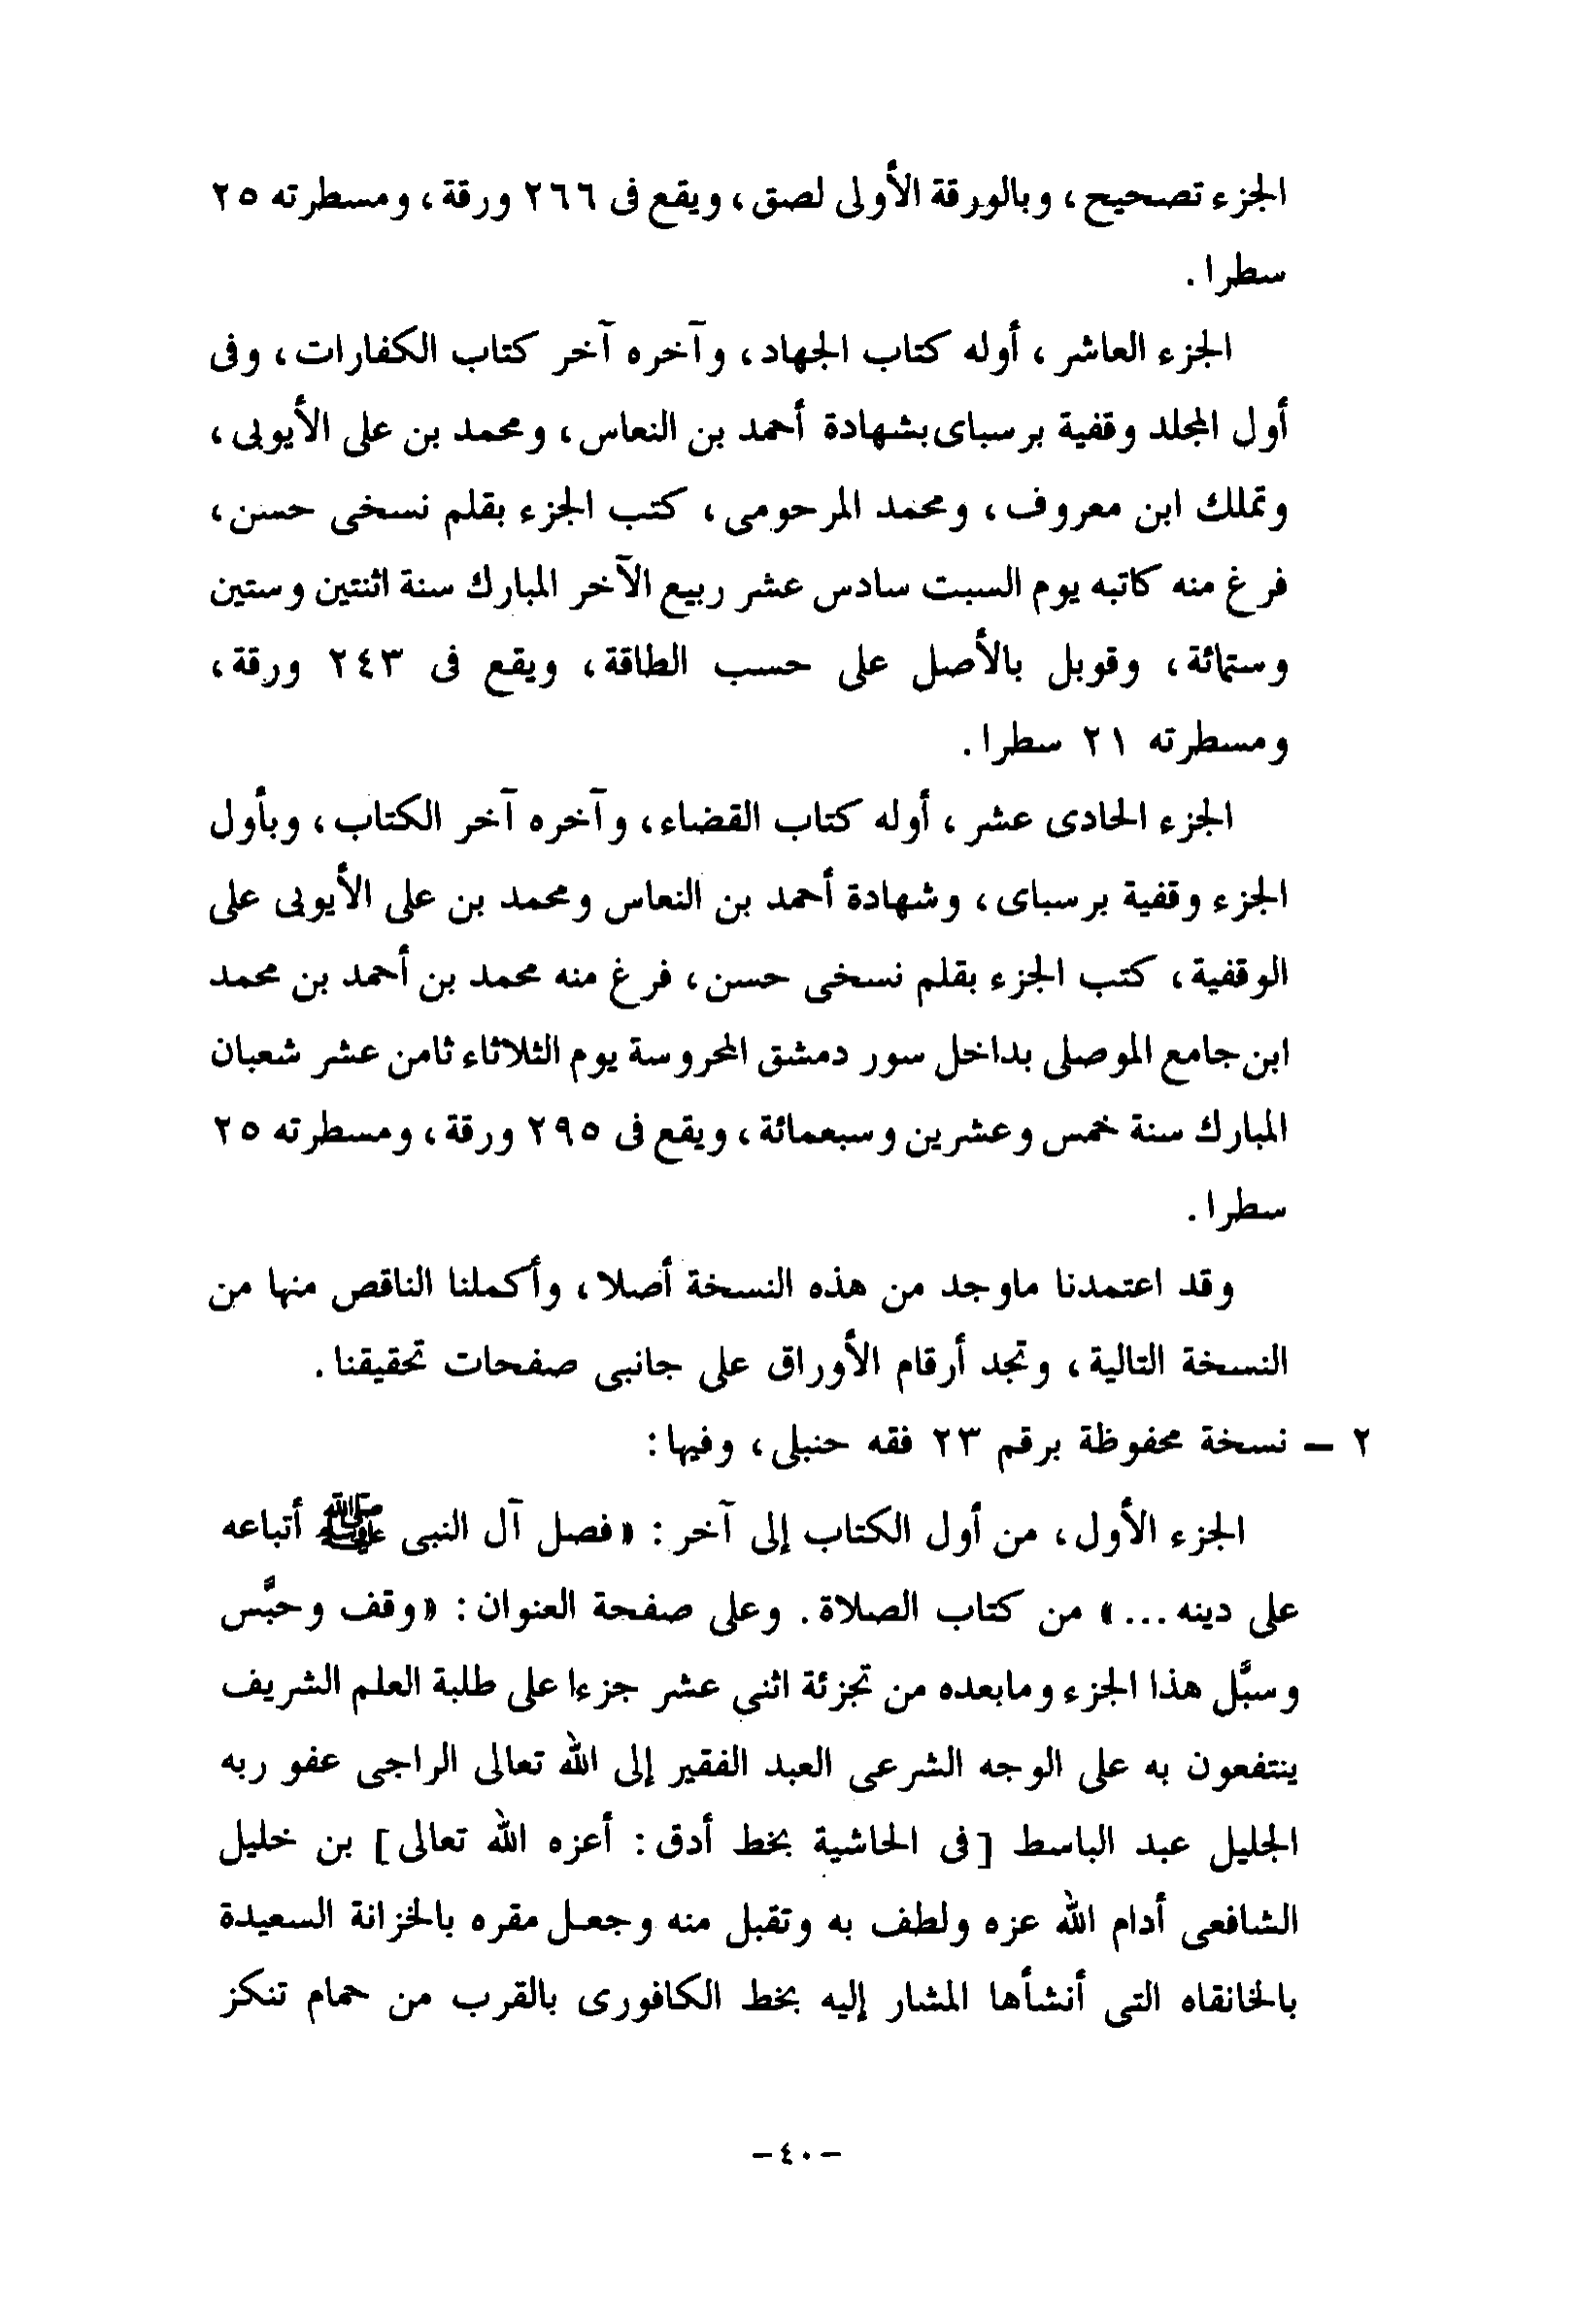 الجزء تصحيح، وبالورقة الأولى لصق، ويقع فى ٢٦٦ ورقة، ومسطرته ٢٥
سطرا.
الجزء العاشر، أوله كتاب الجهاد، وآخره آخر كتاب الكفارات، وفى
أول المجلد وقفية برسباى بشهادة أحمد بن النعاس، ومحمد بن على الأيوبى،
وتملك ابن معروف، ومحمد المرحومى، كتب الجزء بقلم نسخى حسن،
فرغ منه كاتبه يوم السبت سادس عشر ربيع الآخر المبارك سنة اثنتين وستين
وستمائة، وقوبل بالأصل على حسب الطاقة، ويقع فى ٢٤٣ ورقة،
ومسطرته ٢١ سطرا.
الجزء الحادى عشر، أوله كتاب القضاء، وآخره آخر الكتاب، وبأول
الجزء وقفية برسباى، وشهادة أحمد بن النعاس ومحمد بن على الأيوبى على
الوقفية، كتب الجزء بقلم نسخى حسن، فرغ منه محمد بن أحمد بن محمد
ابن جامع الموصلى بداخل سور دمشق المحروسة يوم الثلاثاء ثامن عشر شعبان
المبارك سنة خمس وعشرين وسبعمائة، ويقع فى ٢٩٥ ورقة، ومسطرته ٢٥
سطرا.
وقد اعتمدنا ماوجد من هذه النسخة أصلا، وأكملنا الناقص منها من
النسخة التالية، وتجد أرقام الأوراق على جانبى صفحات تحقيقنا.
٢ – نسخة محفوظة برقم ٢٣ فقه حنبلى، وفيها:
الجزء الأول، من أول الكتاب إلى آخر: «فصل آل النبى ﷺ أتباعه
على دينه...» من كتاب الصلاة. وعلى صفحة العنوان: «وقف وحبَّس
وسبَّل هذا الجزء ومابعده من تجزئة اثنى عشر جزءا على طلبة العلم الشريف
ينتفعون به على الوجه الشرعى العبد الفقير إلى الله تعالى الراجى عفو ربه
الجليل عبد الباسط [فى الحاشية بخط أدق: أعزه الله تعالى] بن خليل
الشافعى أدام الله عزه ولطف به وتقبل منه وجعل مقره بالخزانة السعيدة
بالخانقاه التى أنشأها المشار إليه بخط الكافورى بالقرب من حمام تنكز
– ٤٠ –